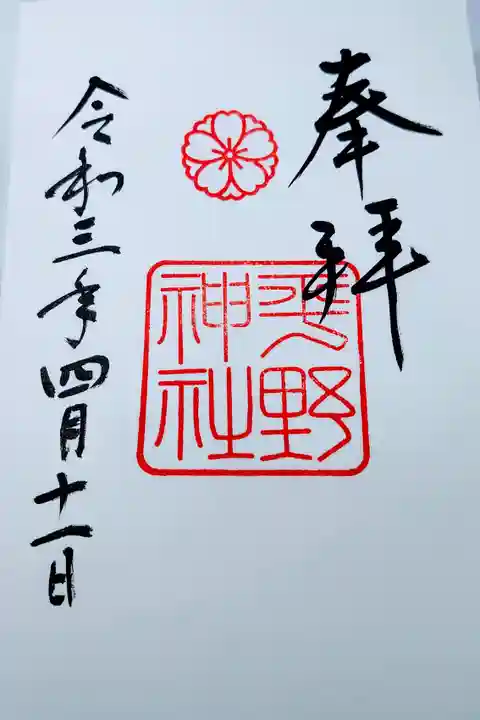 奉拝
平野
神社
令和三年四月十一日